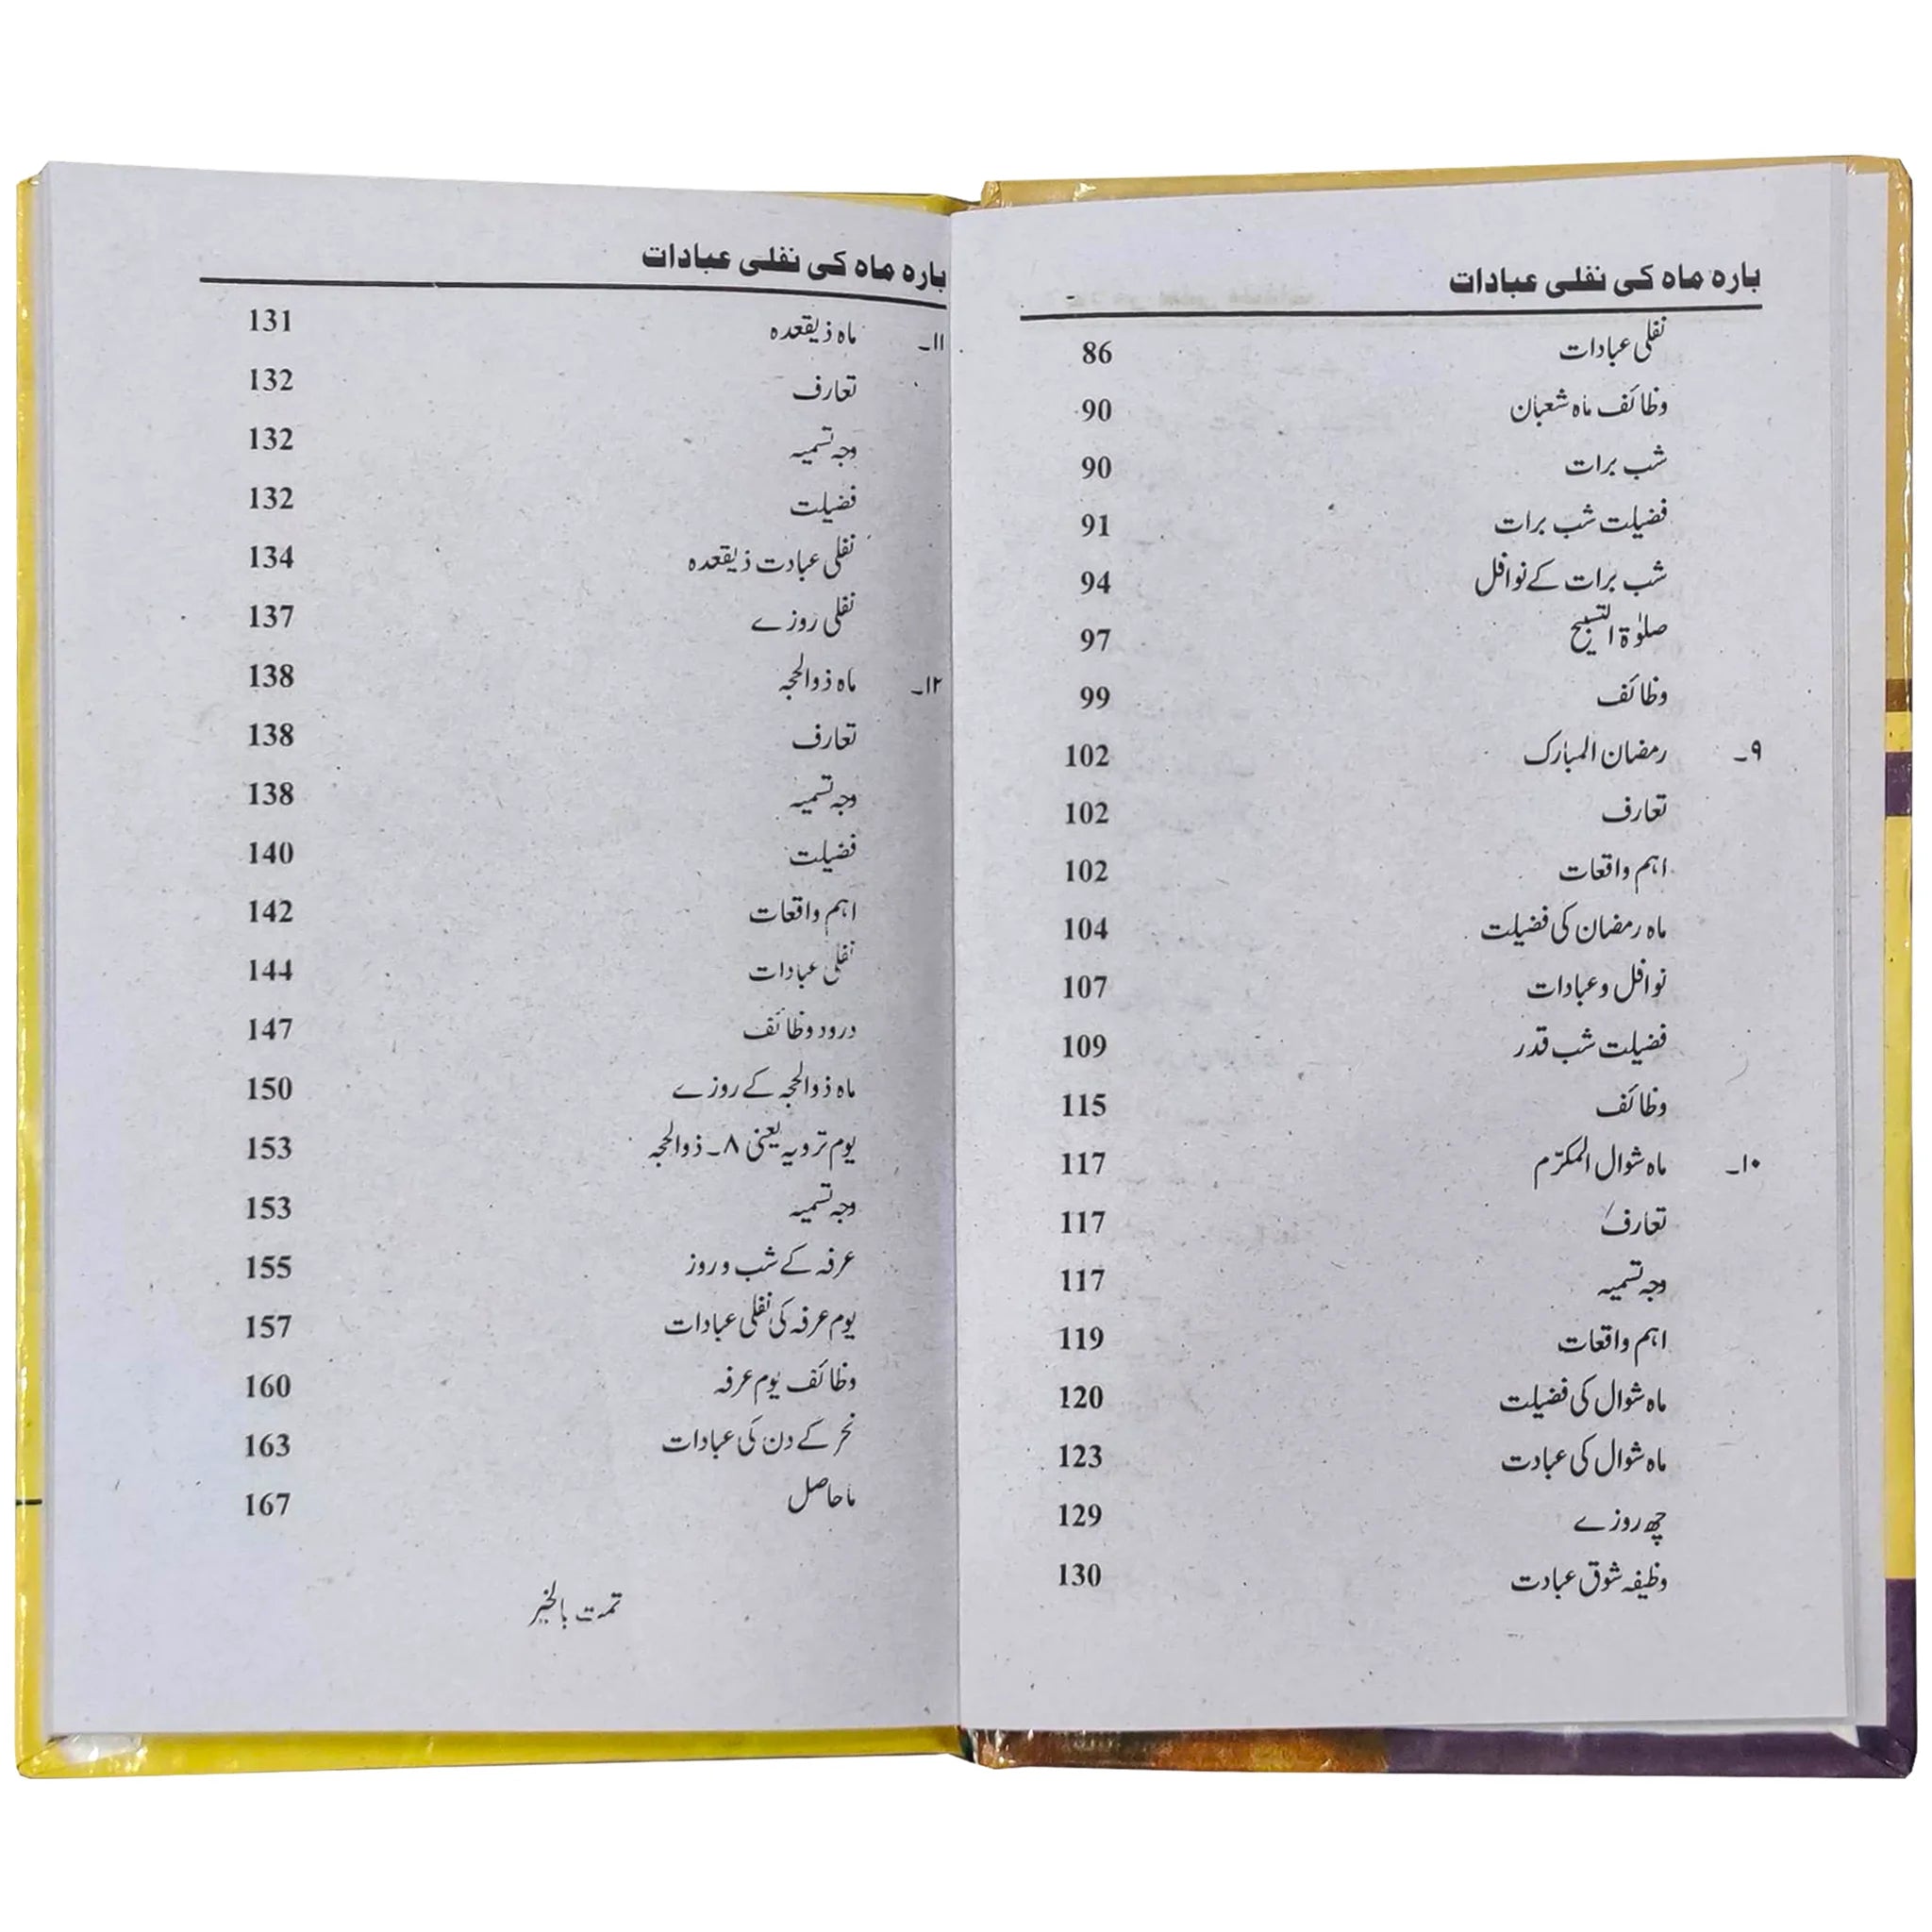 بارہ ماہ کی نفلی عبادات
نفلی عبادات 86
وظائف ماہ شعبان 90
شب برات 90
فضیلت شب برات 91
شب برات کے نوافل 94
صلوٰۃ التسبیح 97
وظائف 99
۹۔ رمضان المبارک 102
تعارف 102
اہم واقعات 102
ماہ رمضان کی فضیلت 104
نوافل و عبادات 107
فضیلت شب قدر 109
وظائف 115
۱۰۔ ماہ شوال المکرّم 117
تعارف 117
وجہ تسمیہ 117
اہم واقعات 119
ماہ شوال کی فضیلت 120
ماہ شوال کی عبادت 123
چھ روزے 129
وظیفہ شوق عبادت 130
بارہ ماہ کی نفلی عبادات
۱۱۔ ماہ ذیقعدہ 131
تعارف 132
وجہ تسمیہ 132
فضیلت 132
نفلی عبادت ذیقعدہ 134
نفلی روزے 137
۱۲۔ ماہ ذوالحجہ 138
تعارف 138
وجہ تسمیہ 138
فضیلت 140
اہم واقعات 142
نفلی عبادات 144
درود وظائف 147
ماہ ذوالحجہ کے روزے 150
یوم ترویہ یعنی ۸۔ ذوالحجہ 153
وجہ تسمیہ 153
عرفہ کے شب و روز 155
یوم عرفہ کی نفلی عبادات 157
وظائف یوم عرفہ 160
نحر کے دن کی عبادات 163
ماحاصل 167
تمت بالخیر